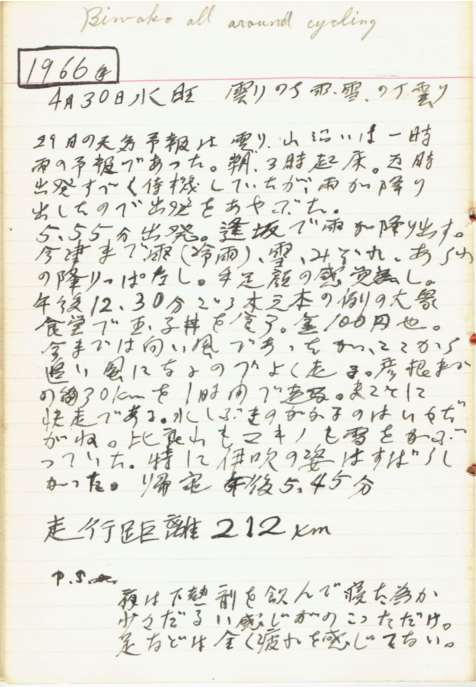 Biwako all around cycling
1966年
4月30日水旺 雲りのち雨.雪.のち雲り
29日の天気予報は雲り、山沿いは一時
雨の予報であった。朝、3時起床。五時
出発すべく待機していたが、雨が降り
出したので出発をあやぶむ。
5.55分出発。逢坂で雨が降り出す。
今津まで雨(冷雨)、雪、みぞれ、あられ
の降りっぱなし。手足顔の感覚無し。
午後12.30分ごろ木之本の例の大衆
食堂で玉子丼を食う。金100円也。
今までは向い風であったが、ここから
追い風になるのでよく走る。彦根まで
の約30kmを1時間で走る。まことに
快走である。水しぶきのかかるのはいやだ
がね。比良山もマキノも雪をかぶ
っていた。特に伊吹の姿はすばらし
かった。帰宅 午後5.45分
走行距離 212km
P.S.
夜は下熱剤を飲んで寝た為か
少々だるい感じがのこっただけ。
足などは全く疲れを感じてない。